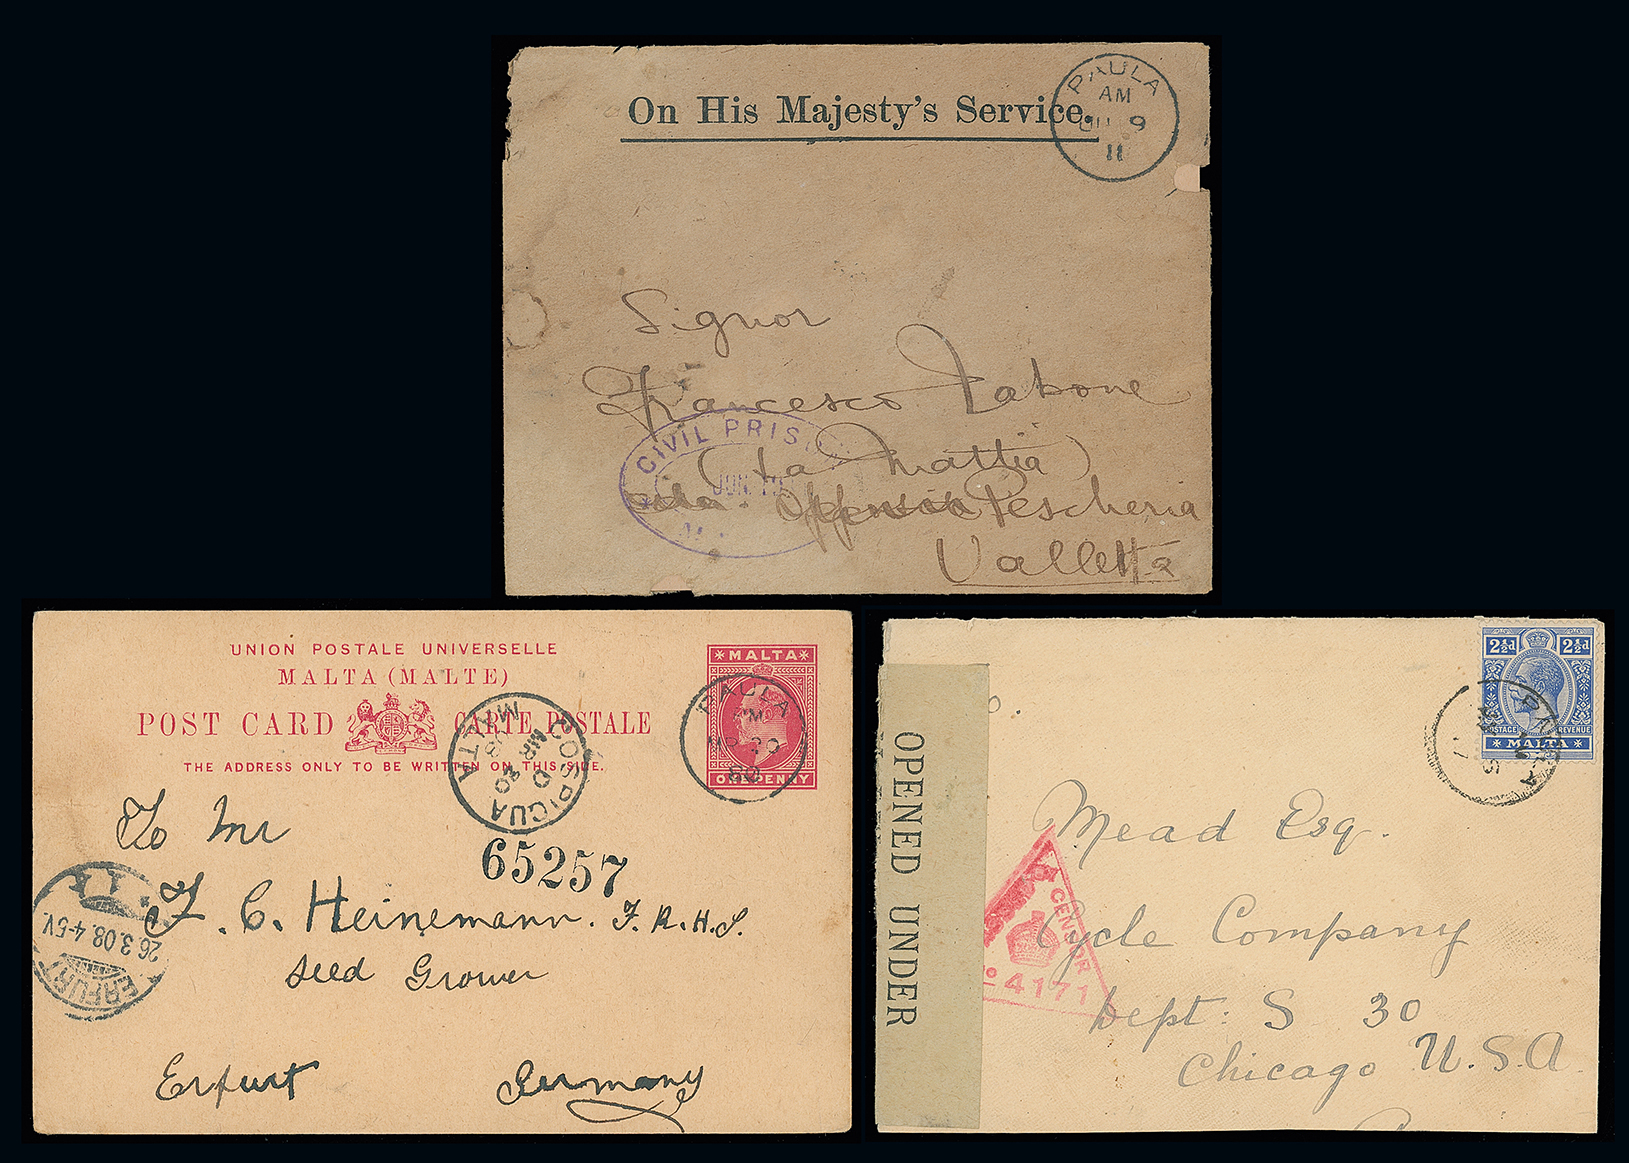 On His Majesty's Service.
PAULA
AM
9
11
Signor
Francesco Tabone
(La Mattia)
CIVIL PRIS
JUN. 10
Pescheria
Valletta
UNION POSTALE UNIVERSELLE
MALTA (MALTE)
POST CARD CARTE POSTALE
THE ADDRESS ONLY TO BE WRITTEN ON THIS SIDE.
*MALTA*
ONE PENNY
PAULA
COSPICUA
D
MR 20
MALTA
65257
To Mr
F. C. Heinemann. F. R. H. S.
Seed Grower
Erfurt Germany
ERFURT
26.3.08.4-5V.
2½d 2½d
POSTAGE REVENUE
*MALTA*
OPENED UNDER
CENSOR
No 4171
o.
Mead Esq.
Cycle Company
Dept: S 30
Chicago U.S.A